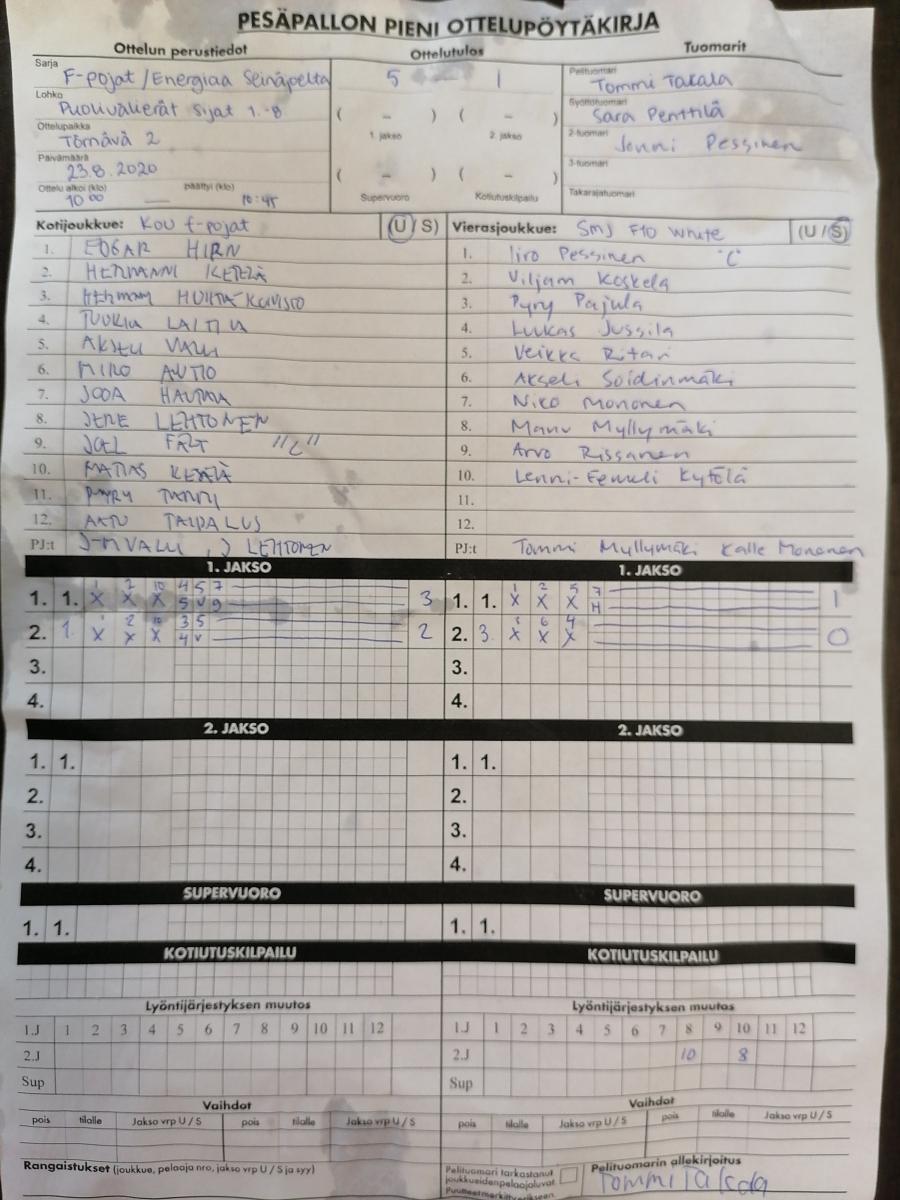 PESÄPALLON PIENI OTTELUPÖYTÄKIRJA
Ottelun perustiedot
Ottelutulos
Tuomarit
Sarja
F-pojat / Energiaa Seinäpelta
Lohko
Puolivälierät sijat 1.-8
Ottelupaikka
Törnävä 2
Päivämäärä
23.8.2020
Ottelu alkoi (klo) päättyi (klo)
10 00 — 10:45
5 1
( – ) ( – )
1. jakso 2. jakso
( – ) ( – )
Supervuoro Kotiutuskilpailu
Pelituomari
Tommi Takala
Syöttötuomari
Sara Penttilä
2-tuomari
Jenni Pessinen
3-tuomari
Takarajatuomari
Kotijoukkue: KOU f-pojat (U/S)
1. EDGAR HIRN
2. HERMANNI KETELÄ
3. HERMANNI HUHTA-KOIVISTO
4. TUUKKA LAITILA
5. AKSELI VALLI
6. MIRO AUTIO
7. JOOA HAUTALA
8. JERE LEHTONEN
9. JOEL FÄLT "C"
10. MATIAS KETELÄ
11. PYRY
12. AATU TAIPALUS
PJ:t J-M VALLI, J LEHTONEN
Vierasjoukkue: SMJ F10 White (U/S)
1. Iiro Pessinen "C"
2. Viljam Koskela
3. Pyry Pajula
4. Luukas Jussila
5. Veikka Ritari
6. Akseli Soidinmäki
7. Niko Mononen
8. Manu Myllymäki
9. Arvo Rissanen
10. Lenni-Eemeli Kytölä
11.
12.
PJ:t Tommi Myllymäki Kalle Mononen
1. JAKSO 1. JAKSO
1 2 10 4 5 7
1. 1. X X X 5 V 9 3
1 2 5 7
1. 1. X X X H 1
1 2 10 3 5
2. 1. X X X 4 V 2
6 4
2. 3. X X X 0
3. 3.
4. 4.
2. JAKSO 2. JAKSO
1. 1. 1. 1.
2. 2.
3. 3.
4. 4.
SUPERVUORO SUPERVUORO
1. 1. 1. 1.
KOTIUTUSKILPAILU KOTIUTUSKILPAILU
Lyöntijärjestyksen muutos Lyöntijärjestyksen muutos
1.J 1 2 3 4 5 6 7 8 9 10 11 12
1.J 1 2 3 4 5 6 7 8 9 10 11 12
2.J
2.J 10 8
Sup Sup
Vaihdot Vaihdot
pois tilalle Jakso vrp U / S pois tilalle Jakso vrp U / S
pois tilalle Jakso vrp U / S pois tilalle Jakso vrp U / S
Rangaistukset (joukkue, pelaaja nro, jakso vrp U / S ja syy)
Pelituomari tarkastanut
joukkueiden pelaajaluvat.
Pelituomarin allekirjoitus
Tommi Takala